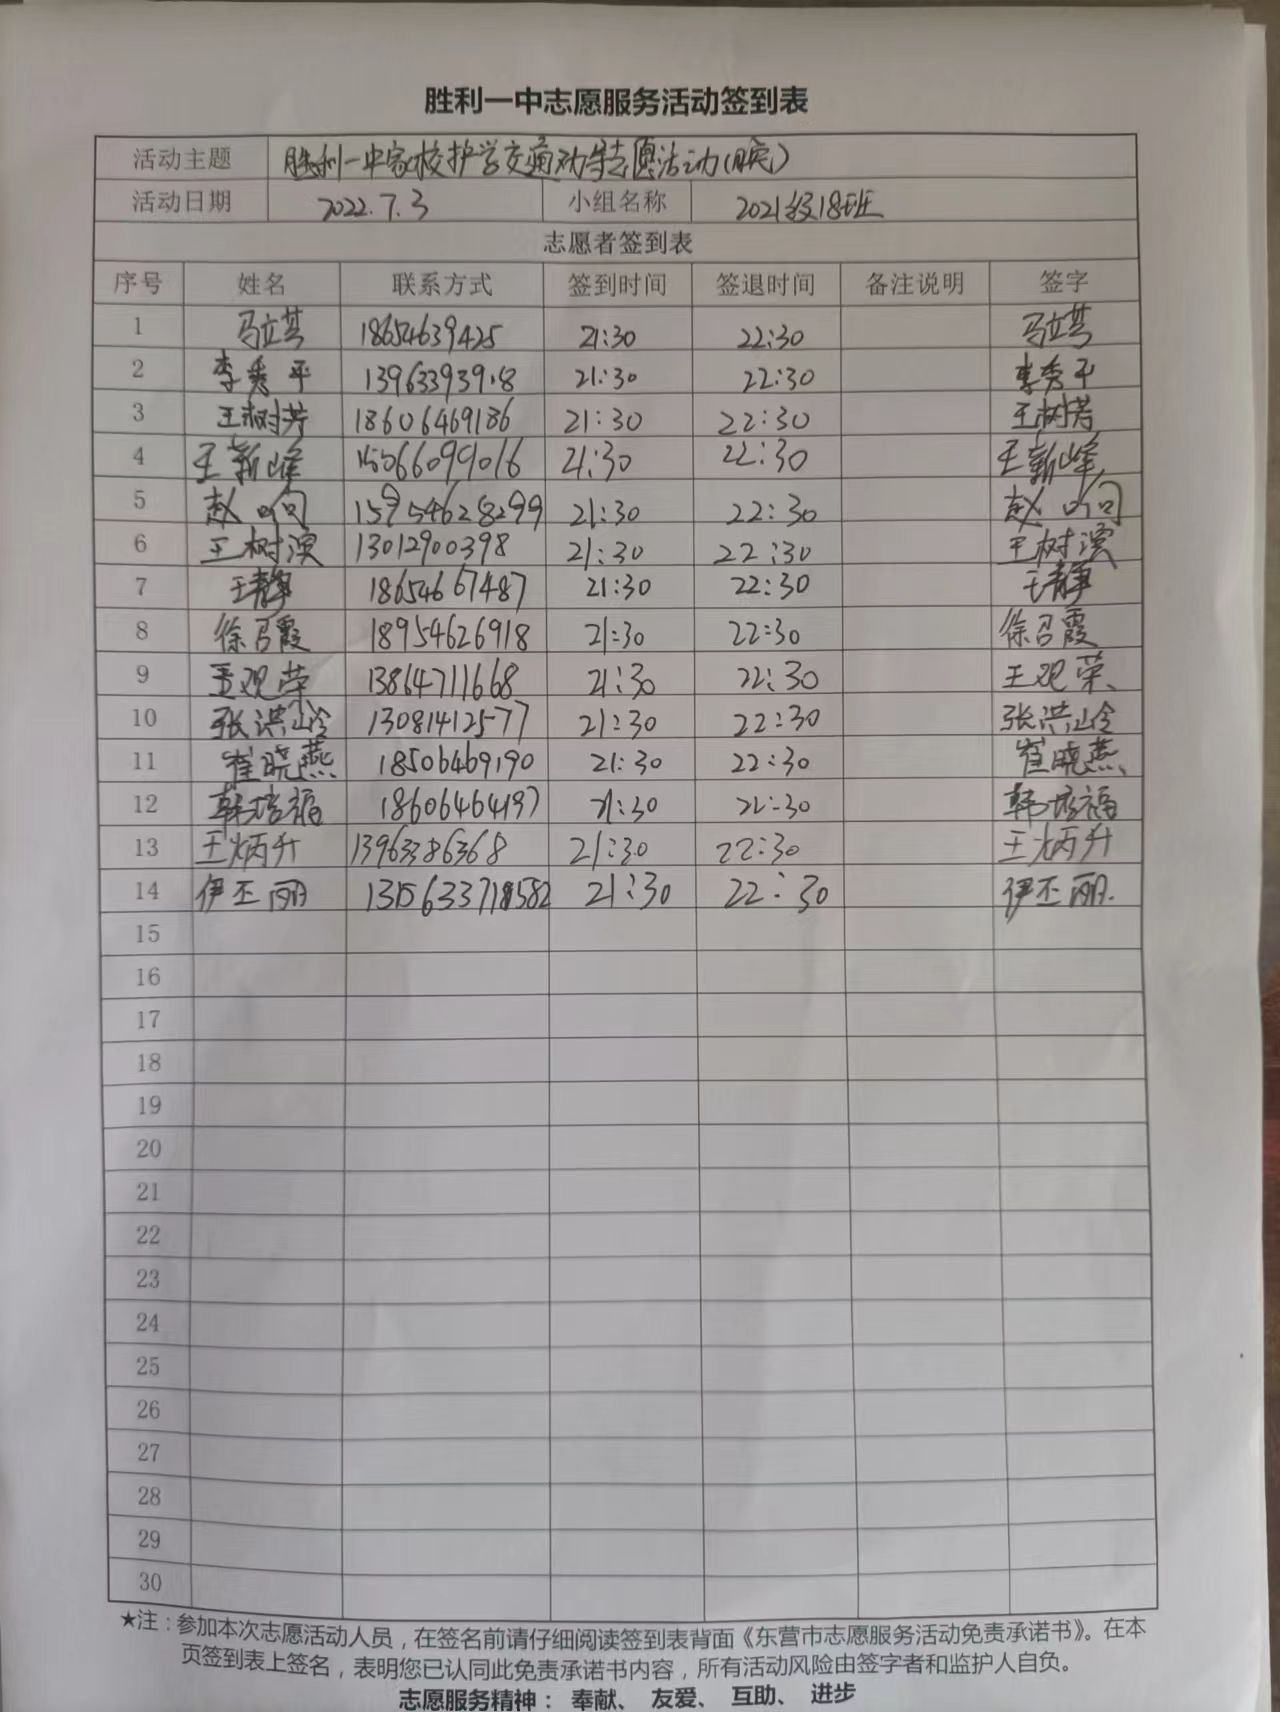 胜利一中志愿服务活动签到表
活动主题 胜利一中家校护学交通劝导志愿活动(晚)
活动日期 2022.7.3 小组名称 2021级18班
志愿者签到表
序号 姓名 联系方式 签到时间 签退时间 备注说明 签字
1 马立英 18654639425 21:30 22:30 马立英
2 李秀平 13963393918 21:30 22:30 李秀平
3 王树芳 18606469186 21:30 22:30 王树芳
4 王新峰 15066099016 21:30 22:30 王新峰
5 赵响 15954628299 21:30 22:30 赵响
6 王树滨 13012900398 21:30 22:30 王树滨
7 王静 18654667487 21:30 22:30 王静
8 徐召霞 18954626918 21:30 22:30 徐召霞
9 王观荣 13864711668 21:30 22:30 王观荣
10 张洪岭 13081412577 21:30 22:30 张洪岭
11 崔晓燕 18506469190 21:30 22:30 崔晓燕
12 韩培福 18606464197 21:30 22:30 韩培福
13 王炳升 13963386368 21:30 22:30 王炳升
14 伊丕丽 21:30 22:30 伊丕丽
15
16
17
18
19
20
21
22
23
24
25
26
27
28
29
30
★注：参加本次志愿活动人员，在签名前请仔细阅读签到表背面《东营市志愿服务活动免责承诺书》。在本
页签到表上签名，表明您已认同此免责承诺书内容，所有活动风险由签字者和监护人自负。
志愿服务精神： 奉献、 友爱、 互助、 进步